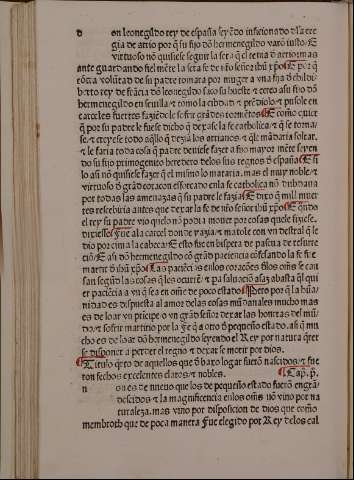 d on leonegildo rey de españa seyẽdo inficionado dla ere
gia de arrio por q̃ su fijo dõ hermenegildo varõ iusto ⁊
virtuoso nõ quisiese seguir la seta q̃ el tenia d arrio: mas
ante guardando fiel mẽte la seta se de nr̃o señor ihũ xp̃o ¶
cõtra volũtad de su padre tomara por muger a vna fija d
berto rey de frãcia dõ leonegildo saco su hueste ⁊ cerco a su fijo dõ
hermenegildo en seuilla ⁊ como la cibdad ⁊ prẽdiolo ⁊ pusole en
carceles fuertes faziẽdole sofrir grãdes tormẽtos ¶ E como quier
q̃ por su padre le fuese dicho q̃ dexase la fe catholica ⁊ q̃ se torna
se ⁊ creyese todo aq̃llo q̃ dezia los arrianos ⁊ q̃ le mãdaria soltar.
⁊ le faria toda cosa q̃ padre deuiese fazer a fijo mayor mẽte seyen
do su fijo primogenito heredero delos sus regnos d españa ¶ E si
lo asi nõ quisiese fazer q̃ el mismo lo mataria. mas el muy noble ⁊
virtuoso d grãd coraçon esforçado en la fe catholica nõ dubdaua
por todas las amenazas q̃ su padre le fazia ¶ E dixo q̃ mill muer
tes resceburia antes que dexar la fe de nr̃o señor ihũ xp̃o ¶ E qñdo
el rey su padre vio quelo nõ podia mouer por cosas quele fiziese.
dixiesse fue ala carcel donde yazia ⁊ matole con vn destral q̃ le
dio por cima la cabeça ⁊ esto fue en bispera de pascua de resurre
ciõ ⁊ asi dõ hermenegildo cõ grãd paciencia cõfesando la fe fue
martir d ihũ xp̃o ¶ Las paciẽcias enlos corações flos om̃s se can
san segũd las cosas q̃ les ocurrẽ ⁊ pa saluaciõ asaz abasta q̃l qui
er paciẽcia a vn q̃ sea en om̃e de poco estado ¶ Pero por q̃ la huma
nidad es dispuesta al amor delas cosas mũdanales mucho mas
es de loar vn prĩcipe o vn grãd señor dexar las honrras del mũ
do ⁊ sofrir martirio por la fe q̃ a otro d pequeño estado. asi q̃ mu
cho es de loar dõ hermenegildo seyendo el Rey por natura q̃rer
se disponer a perder el regno ⁊ dexar se morir por dios.
¶ Titulo q̃rto de aquellos que d baxo logar fuerõ nascidos ⁊ fue
ron fechos excelentes claros ⁊ nobles. ¶ Cap. p̃.
n on es de nueuo que los de pequeño estado fuerõ engrã
descidos ⁊ la magnificencia enlos om̃s nõ vino por na
turaleza. mas vino por disposicion de dios que como
membroth que de poca manera fue elegido por Rey delos cal